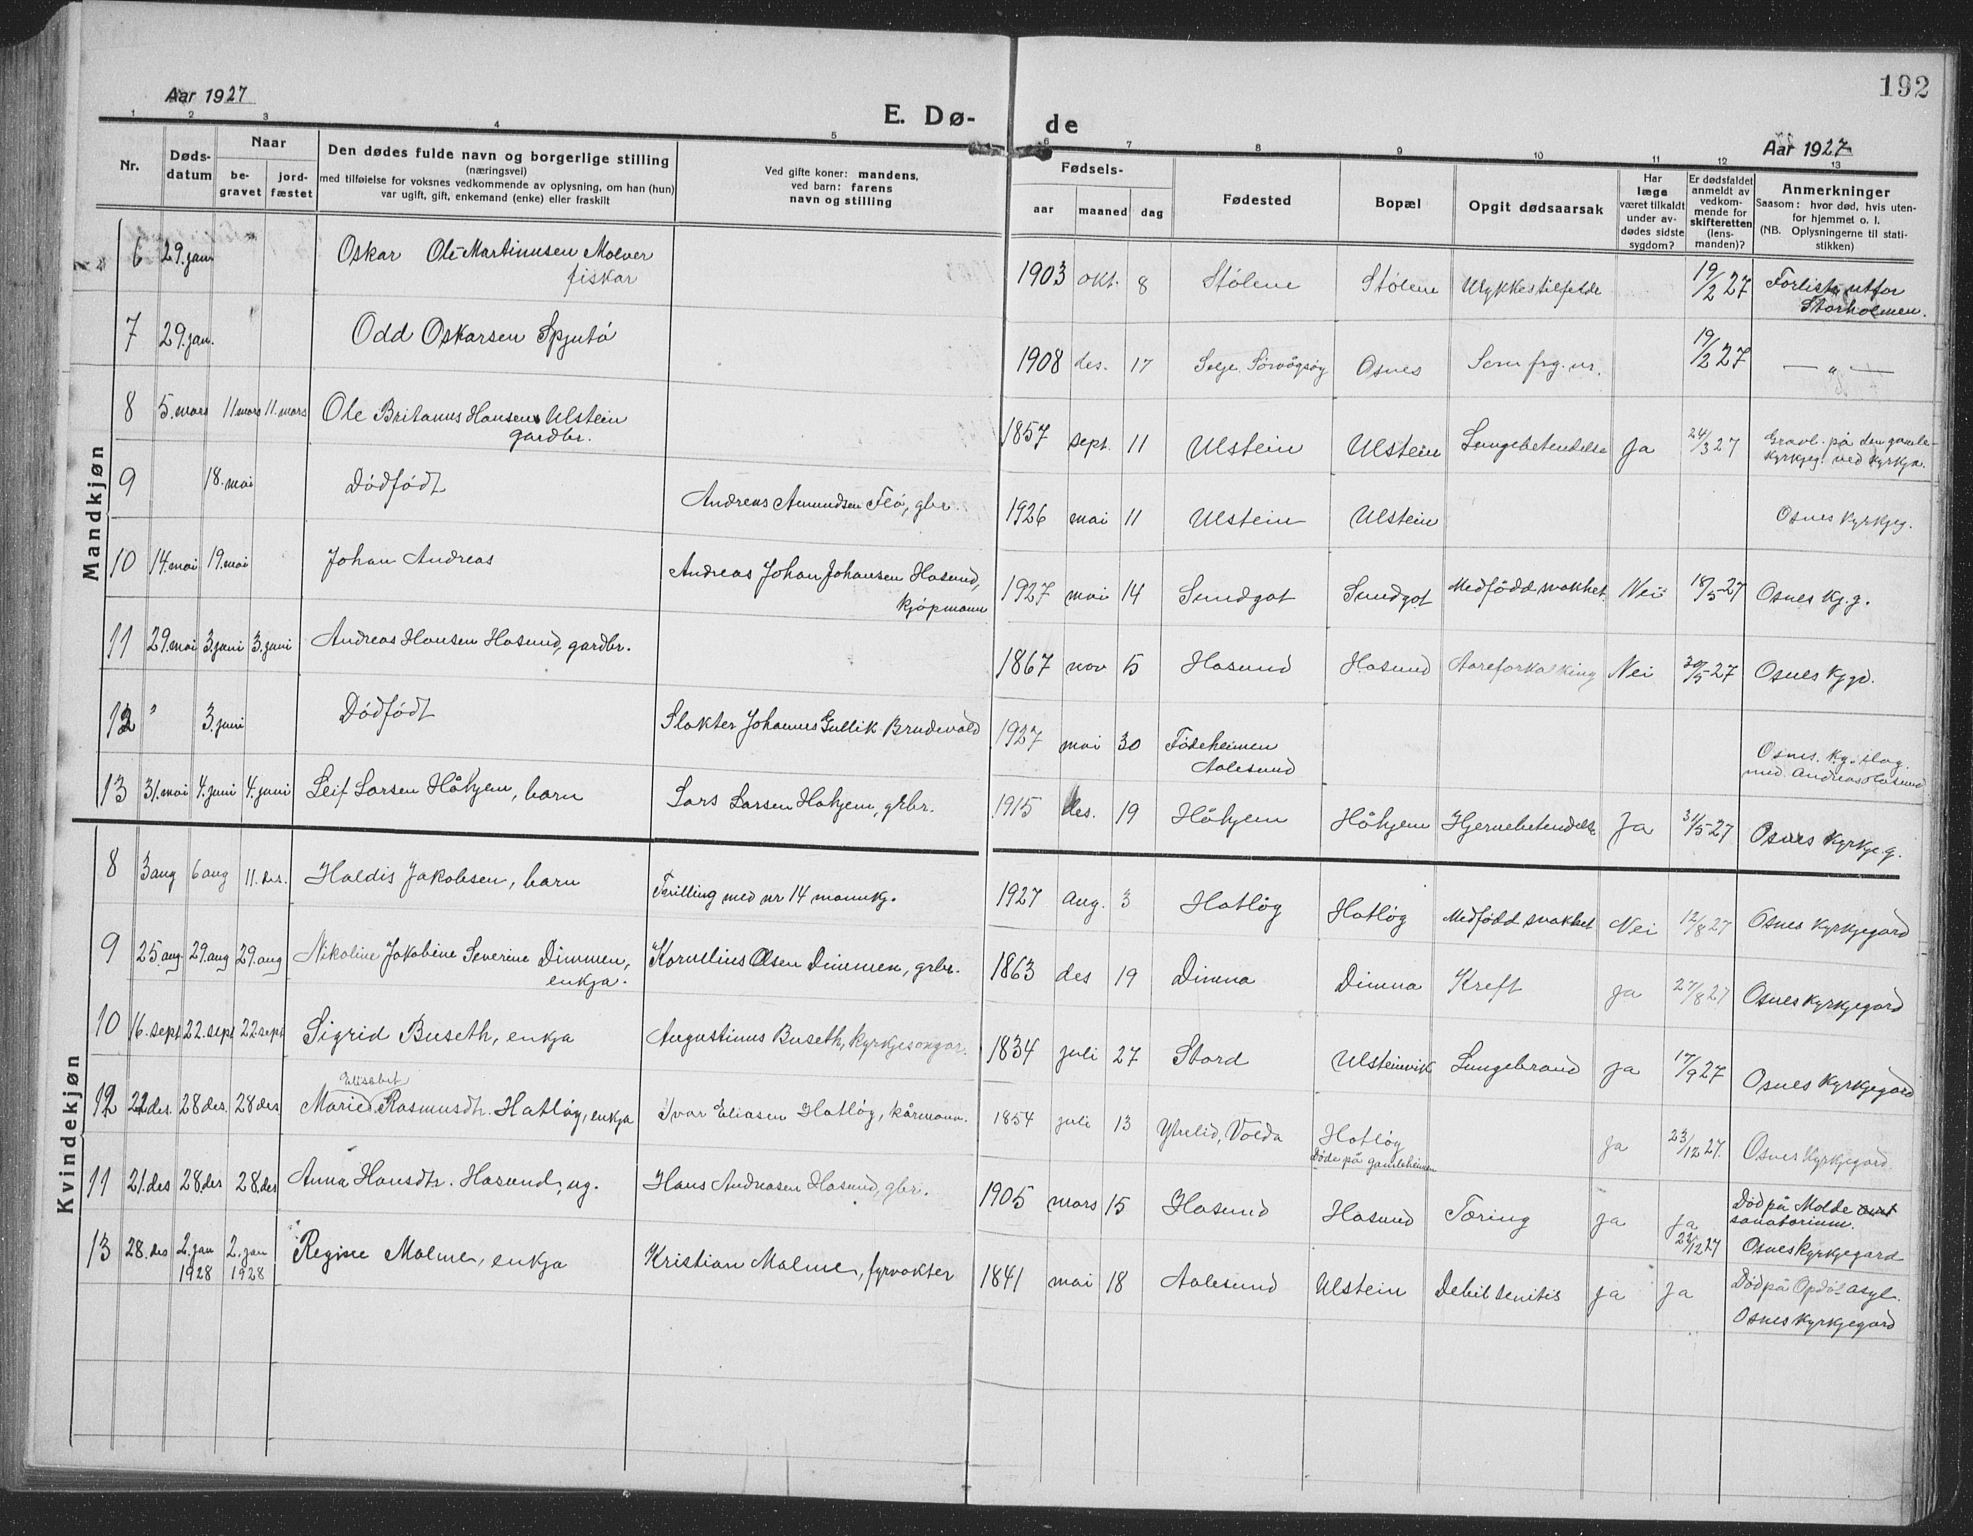 192
Aar 1927
E. Dø-
de
Aar 1927
1 2 3 4 5 6 7 8 9 10 11 12 13
Nr.
Døds-
datum
Naar
be-
gravet
jord-
fæstet
Den dødes fulde navn og borgerlige stilling
(næringsvei)
med tilføielse for voksnes vedkommende av oplysning, om han (hun)
var ugift, gift, enkemand (enke) eller fraskilt
Ved gifte koner: mandens,
ved barn: farens
navn og stilling
Fødsels-
aar maaned dag
Fødested
Bopæl
Opgit dødsaarsak
Har
læge
været tilkaldt
under av-
dødes sidste
sygdom?
Er dødsfaldet
anmeldt av
vedkom-
mende for
skifteretten
(lens-
manden)?
Anmerkninger
Saasom: hvor død, hvis uten-
for hjemmet o. l.
(NB. Oplysningerne til stati-
stikken)
Mandkjøn
6 29. jan. Oskar Ole Martinusen Molver
fiskar
1903 okt. 8 Stølene Stølene Ulykkestilfelde 19/2 27 Forliste utfor
Storholmen.
7 29. jan. Odd Oskarsen Spjutø
1908 des. 17 Selje. Osnes Som frg. nr. 19/2 27 — " —
8 5. mars 11 mars 11. mars Ole Britanus Hansen Ulstein
gardbr.
1857 sept. 11 Ulstein Ulstein Lungebetendelse Ja 24/3 27 Gravl. på den gamle
kyrkjeg. ved kyrkja.
9 18. mai Dødfødt Andreas Amundsen Flø, gbr.
1926 mai 11 Ulstein Ulstein Osnes kyrkjeg.
10 14. mai 19. mai Johan Andreas Andreas Johan Johansen Hasund,
kjøpmann
1927 mai 14 Sundgot Sundgot Medfødd svakhet. Nei 18/5-27 Osnes kj. g.
11 29. mai 3. juni 3. juni Andreas Hansen Hasund, gardbr.
1867 nov 5 Hasund Hasund Aareforkalking Nei 30/5-27 Osnes kjgd.
12 " 3. juni Dødfødt Slakter Johannes Gullik Brudevold
1927 mai 30 Fødeheimen
Aalesund
Osnes. kg. ilag.
med. Andreas Hasund
13 31. mai 4. juni 4. juni Leif Larsen Håhjem, barn Lars Larsen Håhjem, grbr.
1915 des. 19 Håhjem Håhjem Hjernebetendelse Ja 31/5-27 Osnes kyrkje. g.
Kvindekjøn
8 3 aug 6 aug 11. des. Haldis Jakobsen, barn Trilling med nr 14 mannkj.
1927 aug. 3 Hatløy Hatløy Medfødd svakhet Nei 12/8 27 Osnes kyrkjegard
9 25 aug. 29. aug 29. aug Nikoline Jakobine Severine Dimmen,
enkja.
Kornelius Olsen Dimmen, grbr.
1863 des 19 Dimna Dimna Kreft ja 27/8 27 Osnes kyrkjegard
10 16. sept 22. sept 22. sept Sigrid Buseth, enkja Augustinus Buseth, kyrkjesongar.
1834 juli 27 Stord Ulsteinvik Lungebrand Ja 17/9 27 Osnes kyrkjegard
12 22. des. 28 des. 28 des Elisabet
Marie Rasmusdtr. Hatløy, enkja Ivar Eliasen Hatløy, kårmann.
1854 juli 13 Ytrelid, Volda Hatløy
Døde på gamleheimen
Ja 23/12 27. Osnes kyrkjegard.
11 21. des 28. des 28. des Anna Hansdtr. Hasund, ug. Hans Andreasen Hasund, gbr.
1905 mars 15 Hasund Hasund Tæring Ja Ja
22/12 27
Død på Molde
sanatorium.
Osnes kyrkjegard
13 28. des 2. jan
1928 2. jan
1928 Regine Malme, enkja Kristian Malme, fyrvakter
1841 mai 18 Aalesund Ulstein Debil senitis Ja Ja Død på Opdøl asyl.
Osnes kyrkjegard